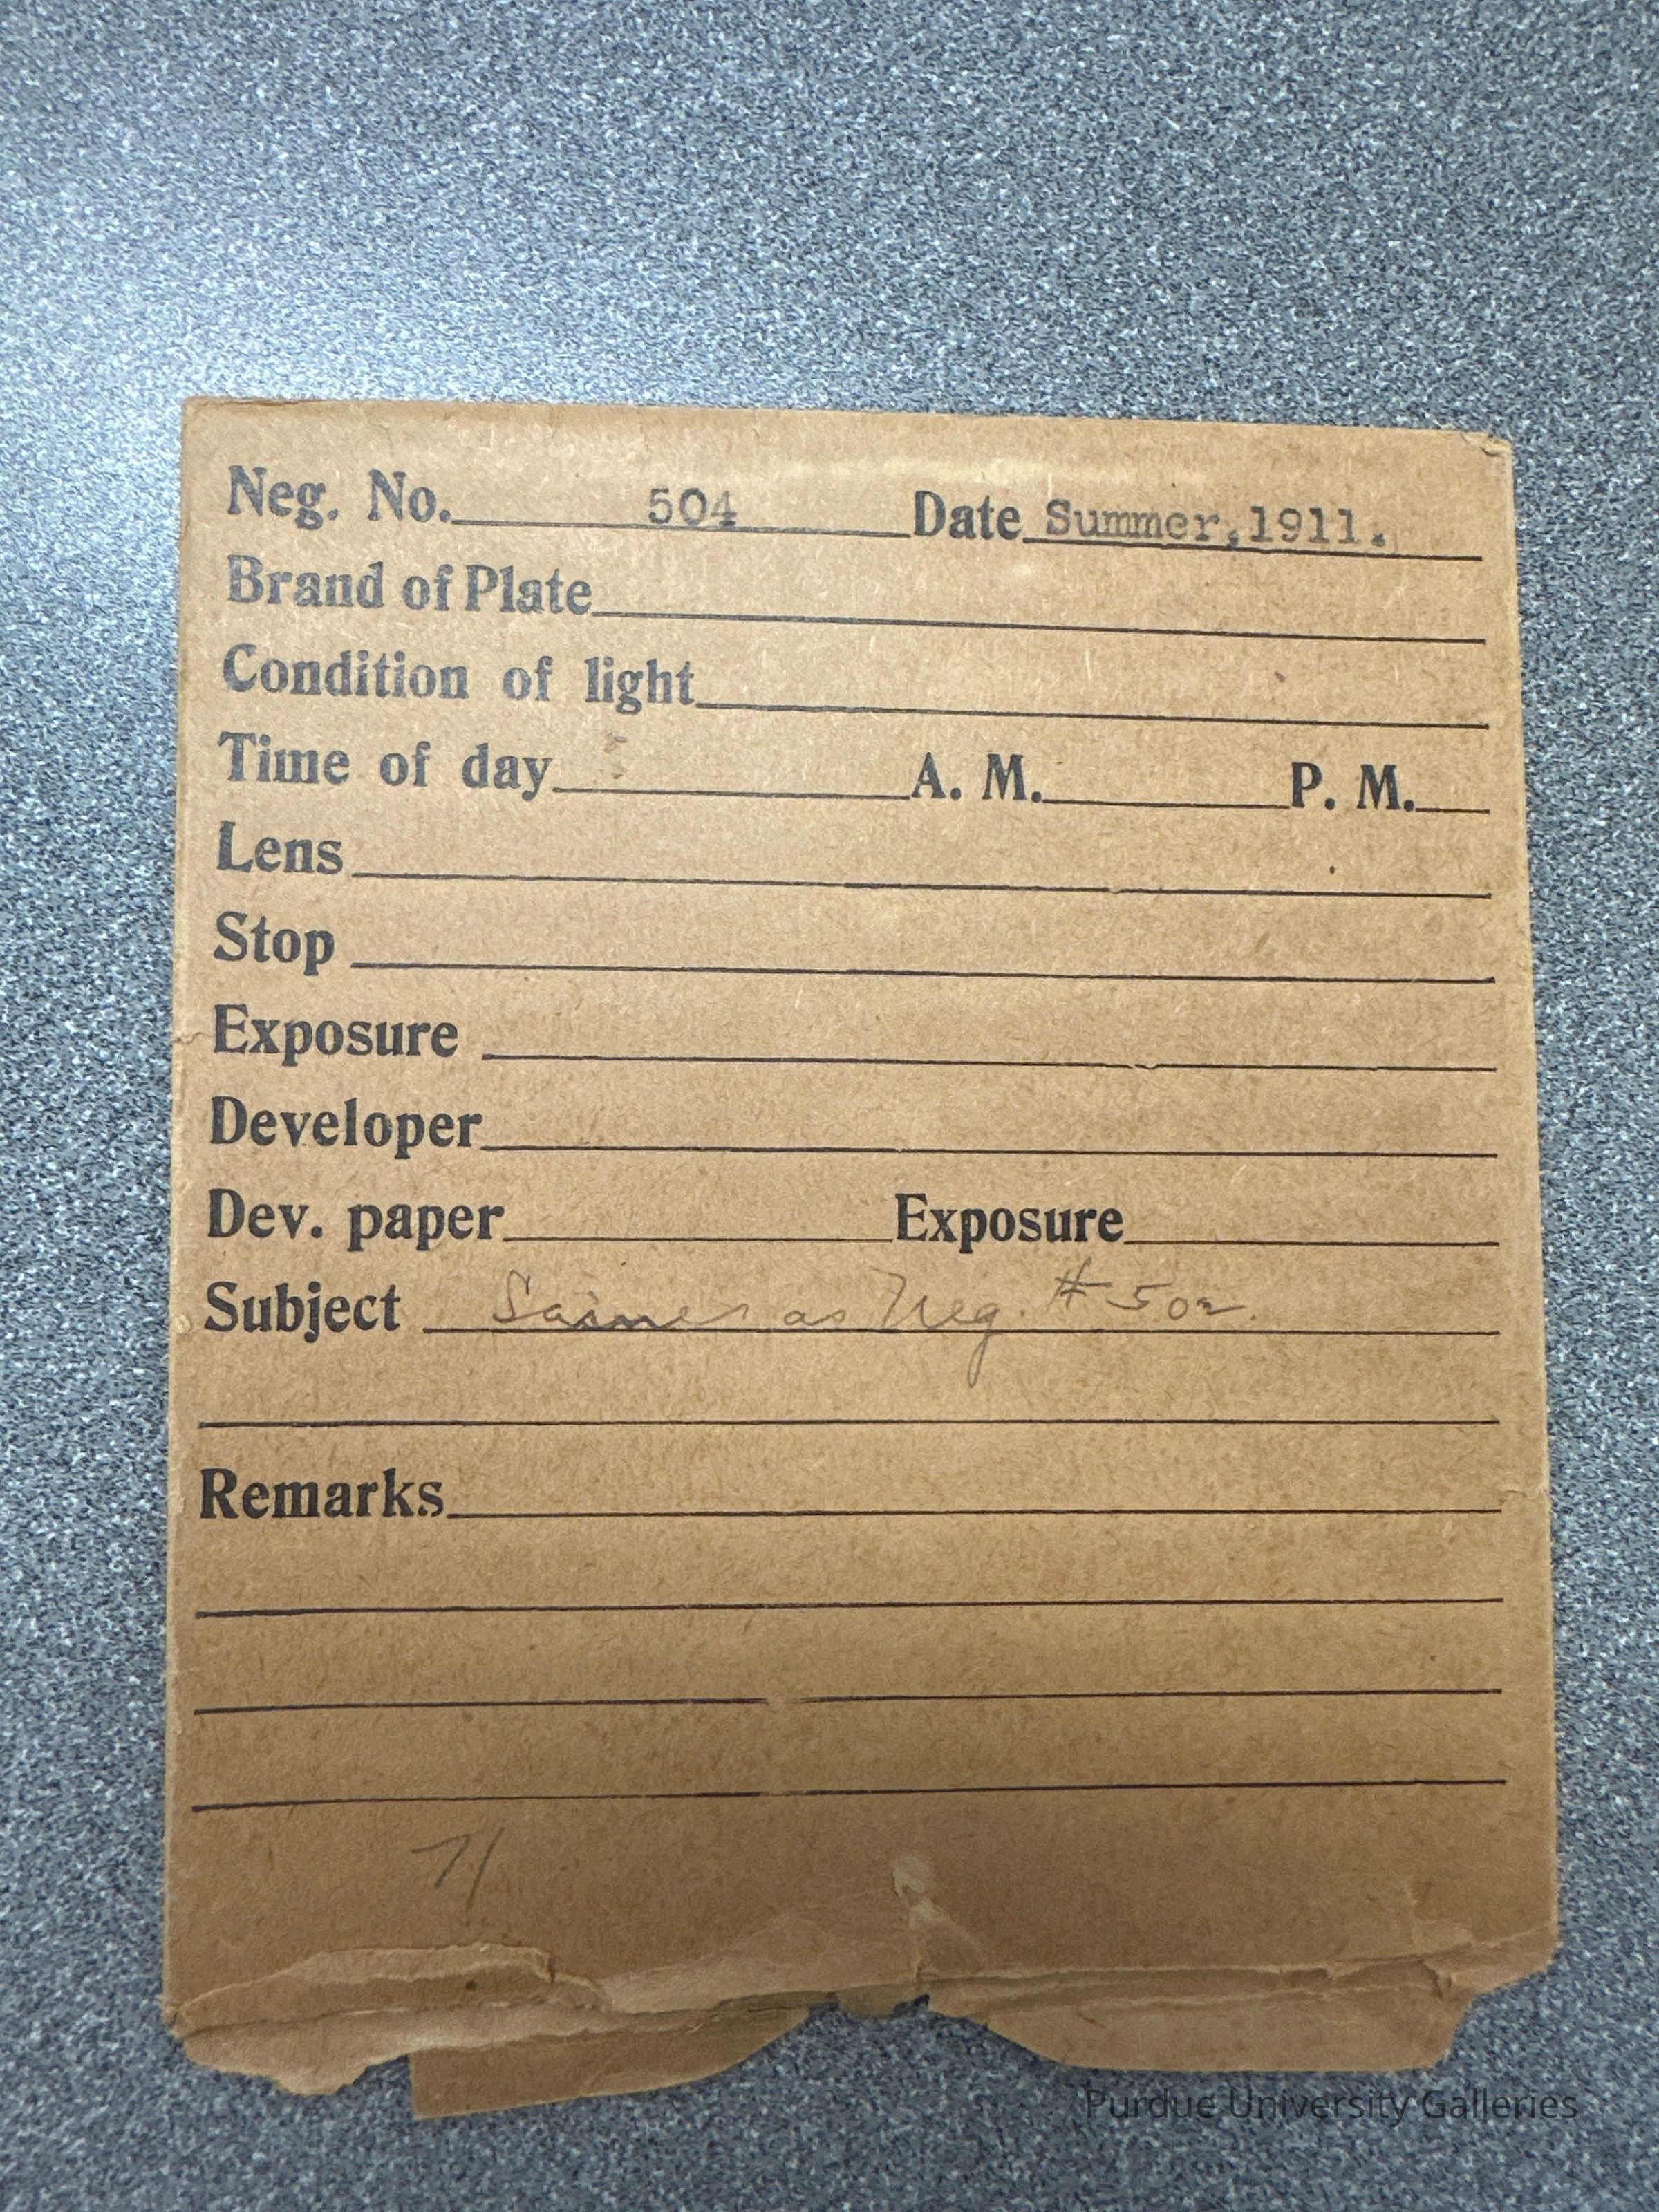 Neg. No. 504 Date Summer, 1911.
Brand of Plate
Condition of light
Time of day A. M. P. M.
Lens
Stop
Exposure
Developer
Dev. paper Exposure
Subject Same as Neg. # 502.
Remarks
71
Purdue University Galleries